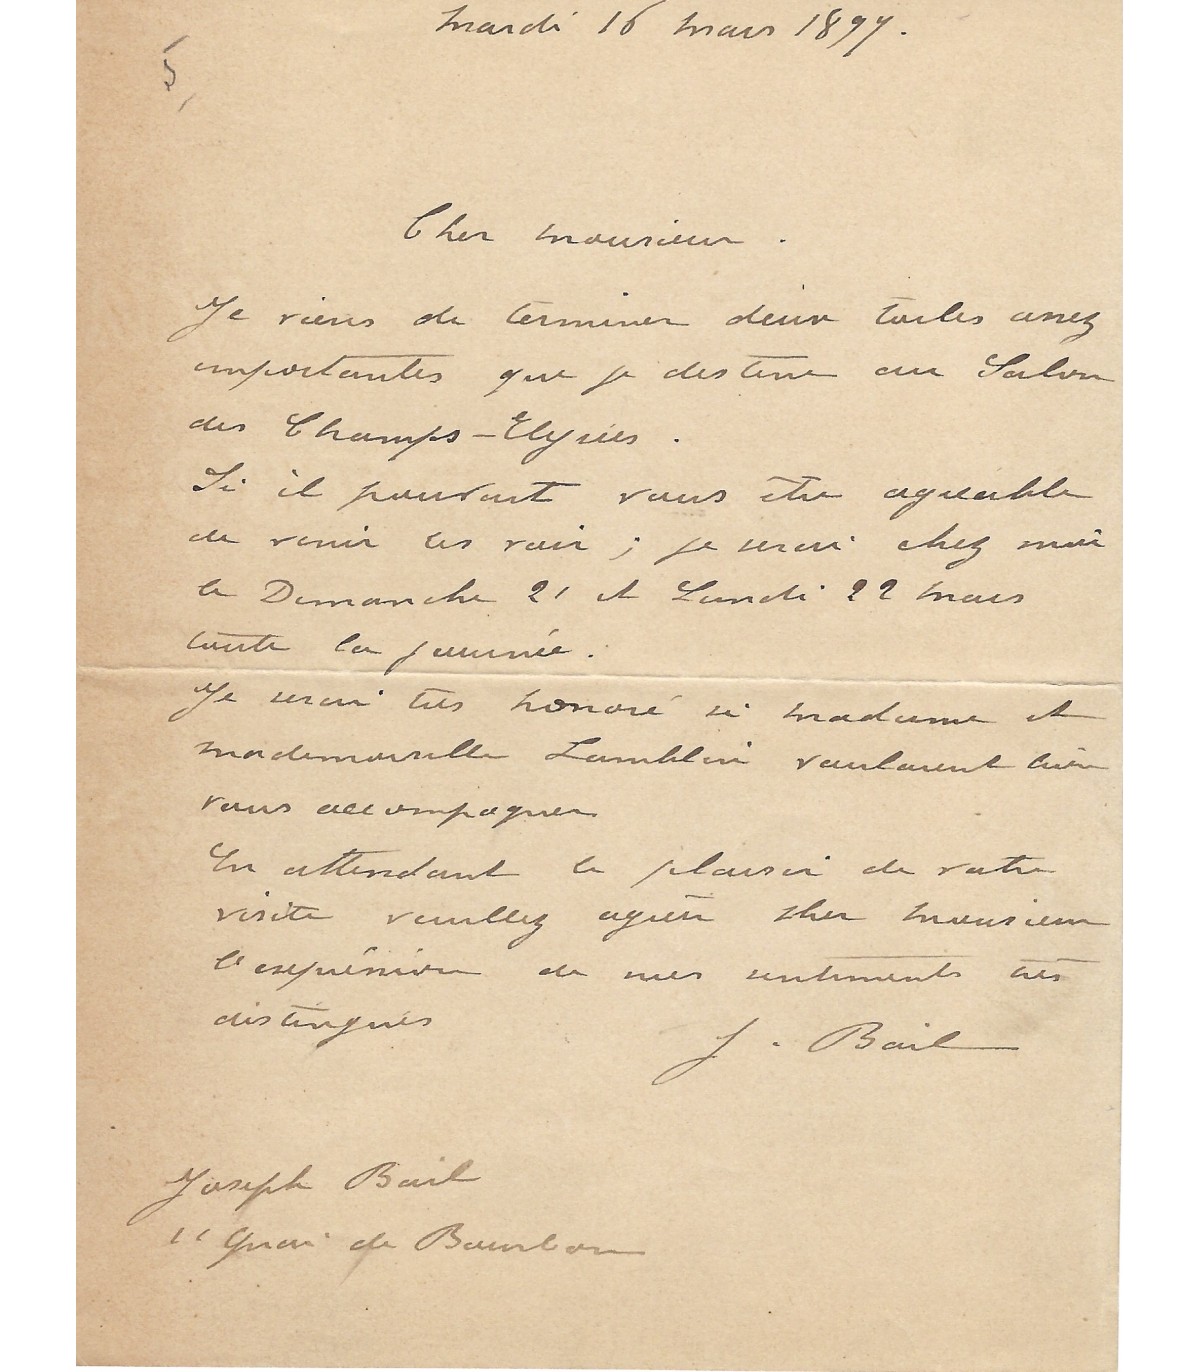 mardi 16 mars 1897.
5,
Cher monsieur.
Je viens de terminer deux toiles assez
importantes que je destine au Salon
des Champs-Elysées.
Si il pouvait vous être agréable
de venir les voir ; je serai chez moi
le Dimanche 21 et Lundi 22 mars
toute la journée.
Je serai très honoré si madame et
mademoiselle Lamblin voulaient bien
vous accompagner
En attendant le plaisir de votre
visite veuillez agréer cher monsieur
l'expression de mes sentiments très
distingués
J. Bail
Joseph Bail
11 Quai de Bourbon